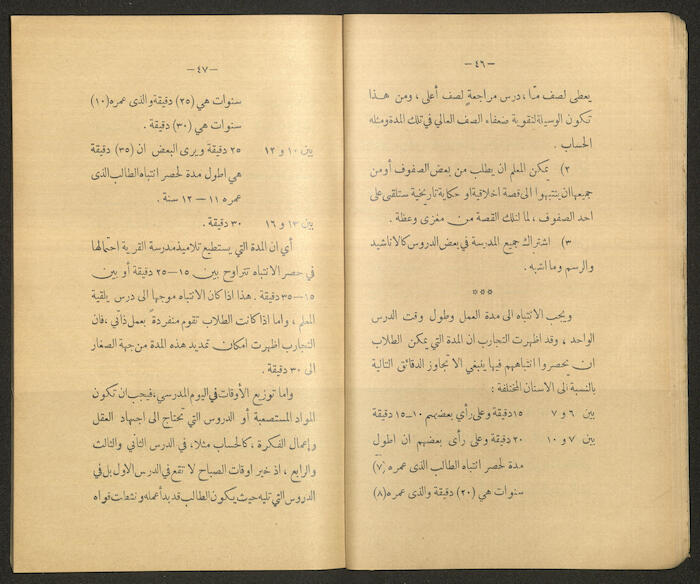 — ٤٦ —
يعطى لصف مّا ، درس مراجعةٍ لصف أعلى ، ومن هذا
تكون الوسيلة لتقوية ضعفاء الصف العالي في تلك المدة ومثله
الحساب .
٢) يمكن المعلم ان يطلب من بعض الصفوف أو من
جميعها ان ينتبهوا الى قصة اخلاقية او حكاية تاريخية ستلقى على
احد الصفوف ، لما لتلك القصة من مغزى وعظة .
٣) اشتراك جميع المدرسة في بعض الدروس كالاناشيد
والرسم وما اشبه .
***
ويجب الانتباه الى مدة العمل وطول وقت الدرس
الواحد ، وقد اظهرت التجارب ان المدة التي يمكن الطلاب
ان يحصروا انتباههم فيها ينبغي الا تجاوز الدقائق التالية
بالنسبة الى الاسنان المختلفة :
بين ٦ و ٧ ١٥ دقيقة وعلى رأي بعضهم ١٠–١٥ دقيقة
بين ٧ و ١٠ ٢٠ دقيقة وعلى رأى بعضهم ان اطول
مدة لحصر انتباه الطالب الذى عمره (٧)
سنوات هي (٢٠) دقيقة والذى عمره (٨)
— ٤٧ —
سنوات هي (٢٥) دقيقة والذى عمره (١٠)
سنوات هي (٣٠) دقيقة .
بين ١٠ و ١٢ ٢٥ دقيقة ويرى البعض ان (٣٥) دقيقة
هي اطول مدة لحصر انتباه الطالب الذى
عمره ١١ – ١٢ سنة .
بين ١٣ و ١٦ ٣٠ دقيقة .
أي ان المدة التي يستطيع تلاميذ مدرسة القرية احتمالها
في حصر الانتباه تتراوح بين ١٥–٢٥ دقيقة أو بين
١٥–٣٥ دقيقة . هذا اذا كان الانتباه موجها الى درس يلقية
المعلم ، واما اذا كانت الطلاب تقوم منفردة بعمل ذاتي ، فان
التجارب اظهرت امكان تمديد هذه المدة من جهة الصغار
الى ٣٠ دقيقة .
واما توزيع الأوقات في اليوم المدرسي ، فيجب ان تكون
المواد المستصعبة أو الدروس التي تحتاج الى اجهاد العقل
وإعمال الفكرة ، كالحساب مثلا ، في الدرس الثاني والثالث
والرابع ، اذ خير اوقات الصباح لا تقع في الدرس الاول بل في
الدروس التي تليه حيث يكون الطالب قد بدأ عمله ونشطت قواه